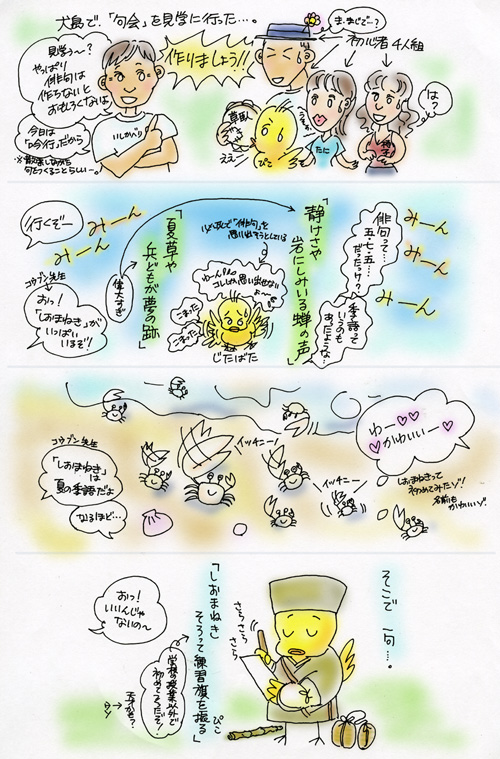 犬島で、「句会」を見学に行った…。
見学〜？
やっぱり
俳句は
作らないと
おもしろくないよ
今日は
「吟行」だから
※散策しながら
句をつくることらしいー。
いしかバリ
作りましょう!!
ま・まじで〜？
初心者4人組
は？
ええ〜
ぴこ
たに
行くぞー
みーん
みーん
みーん
コウブン先生
おっ！
「しおまねき」が
いっぱい
いるぞ!!
「夏草や
兵どもが夢の跡」
偉大すぎ
必死で「俳句」を
思い出そうとしている
うーん
コレしか思い出せない
よ〜
こまった
こまった
じたばた
「静けさや
岩にしみいる蝉の声」
俳句って…
五・七・五…
だったっけ？
季語って
いうのも
あったような…
みーん
みーん
みーん
コウブン先生
「しおまねき」は
夏の季語だよ
なるほど…
イッチニー！
イッチニー！
わー♡♡
♡かわいいー♡
しおまねきって
初めてみたゾ！
名前も
かわいいゾ！
そこで 一句…。
さらさら
さらさら
さら
「しおまねき
そろって練習旗を振る」
ぴこ
おっ！
いいんじゃ
ないの〜
学校の授業以外で
初めてつくったぞ！
天才かも？